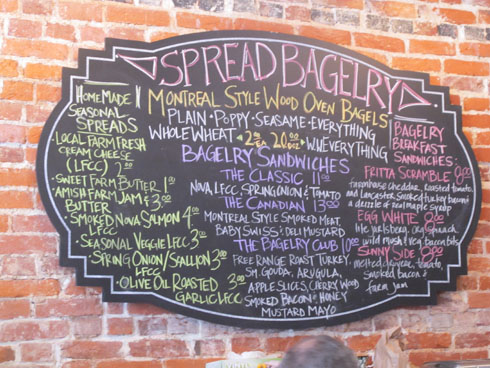 SPREAD BAGELRY
MONTREAL STYLE WOOD OVEN BAGELS
PLAIN • POPPY • SEASAME • EVERYTHING
WHOLE WHEAT 2.00 EA. 20.50 DOZ. WWEVERYTHING
HOMEMADE
SEASONAL
SPREADS
• LOCAL FARM FRESH
CREAM CHEESE
(LFCC) 2.00
• SWEET FARM BUTTER 1.00
• AMISH FARM JAM & 3.00
BUTTER
• SMOKED NOVA SALMON 4.00
LFCC
• SEASONAL VEGGIE LFCC 3.00
• SPRING ONION/SCALLION 3.00
LFCC
• OLIVE OIL ROASTED 3.00
GARLIC LFCC
BAGELRY SANDWICHES
THE CLASSIC 11.00
NOVA, LFCC, SPRING ONION & TOMATO
THE CANADIAN 13.00
MONTREAL STYLE SMOKED MEAT,
BABY SWISS & DELI MUSTARD
THE BAGELRY CLUB 10.00
FREE RANGE ROAST TURKEY,
SM. GOUDA, ARUGULA,
APPLE SLICES, CHERRY WOOD
SMOKED BACON & HONEY
MUSTARD MAYO
BAGELRY
BREAKFAST
SANDWICHES:
FRITTA SCRAMBLE 9.00
farmhouse cheddar, roasted tomato
and Lancaster smoked turkey bacon &
a drizzle of real maple syrup
EGG WHITE 8.00
lite jarlsberg,
wild mush & veg bacon bits
SUNNY SIDE 9.00
melted tomato,
smoked bacon &
farm jam